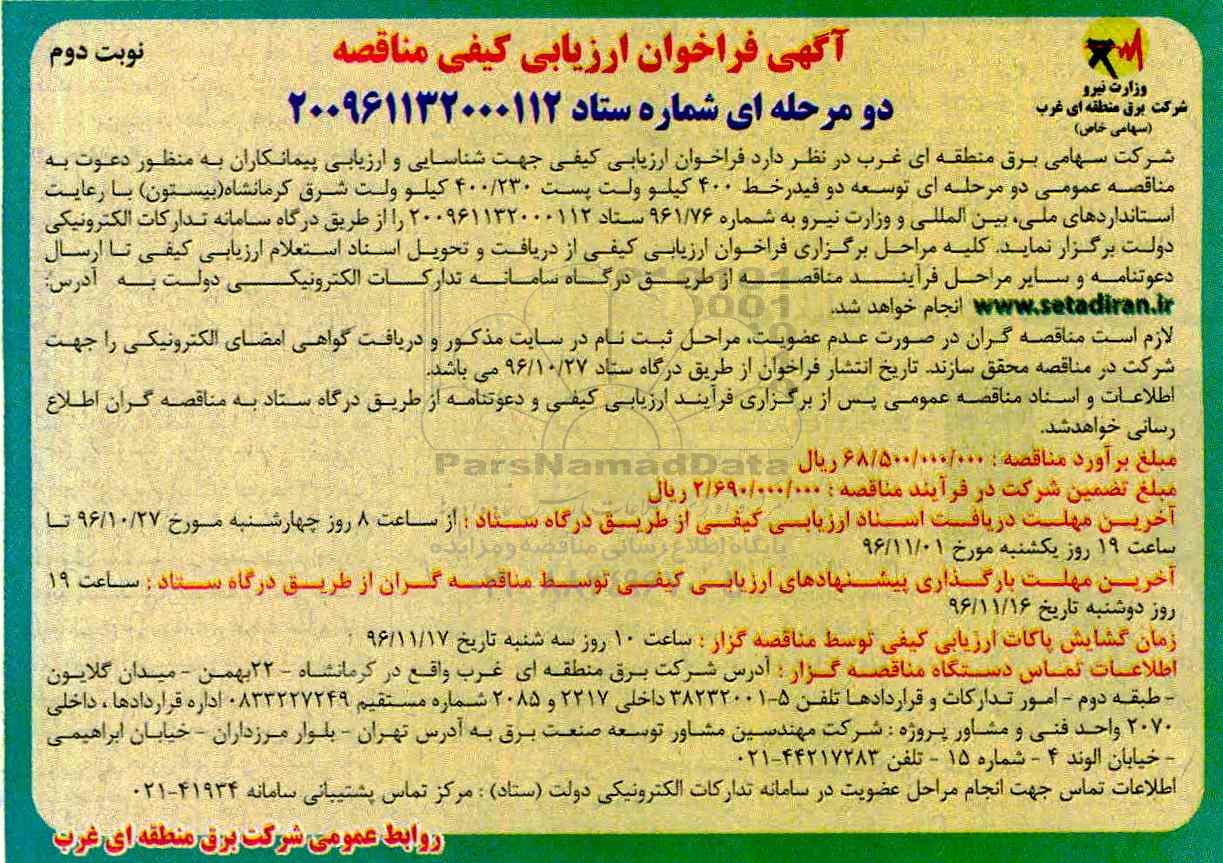 وزارت نیرو
شرکت برق منطقه ای غرب
(سهامی خاص)
آگهی فراخوان ارزیابی کیفی مناقصه
نوبت دوم
دو مرحله ای شماره ستاد ۲۰۰۹۶۱۱۳۲۰۰۰۱۱۲
شرکت سهامی برق منطقه ای غرب در نظر دارد فراخوان ارزیابی کیفی جهت شناسایی و ارزیابی پیمانکاران به منظور دعوت به
مناقصه عمومی دو مرحله ای توسعه دو فیدرخط ۴۰۰ کیلو ولت پست ۴۰۰/۲۳۰ کیلو ولت شرق کرمانشاه(بیستون) با رعایت
استانداردهای ملی، بین المللی و وزارت نیرو به شماره ۹۶۱/۷۶ ستاد ۲۰۰۹۶۱۱۳۲۰۰۰۱۱۲ را از طریق درگاه سامانه تدارکات الکترونیکی
دولت برگزار نماید. کلیه مراحل برگزاری فراخوان ارزیابی کیفی از دریافت و تحویل اسناد استعلام ارزیابی کیفی تا ارسال
دعوتنامه و سایر مراحل فرآیند مناقصه از طریق درگاه سامانه تدارکات الکترونیکی دولت به آدرس:
www.setadiran.ir انجام خواهد شد.
لازم است مناقصه گران در صورت عدم عضویت، مراحل ثبت نام در سایت مذکور و دریافت گواهی امضای الکترونیکی را جهت
شرکت در مناقصه محقق سازند. تاریخ انتشار فراخوان از طریق درگاه ستاد ۹۶/۱۰/۲۷ می باشد.
اطلاعات و اسناد مناقصه عمومی پس از برگزاری فرآیند ارزیابی کیفی و دعوتنامه از طریق درگاه ستاد به مناقصه گران اطلاع
رسانی خواهدشد.
مبلغ برآورد مناقصه : ۶۸/۵۰۰/۰۰۰/۰۰۰ ریال
ParsNamadData
مبلغ تضمین شرکت در فرآیند مناقصه : ۲/۶۹۰/۰۰۰/۰۰۰ ریال
آخرین مهلت دریافت اسناد ارزیابی کیفی از طریق درگاه ستاد : از ساعت ۸ روز چهارشنبه مورخ ۹۶/۱۰/۲۷ تا
ساعت ۱۹ روز یکشنبه مورخ ۹۶/۱۱/۰۱
پایگاه اطلاع رسانی مناقصه و مزایده
آخرین مهلت بارگذاری پیشنهادهای ارزیابی کیفی توسط مناقصه گران از طریق درگاه ستاد : ساعت ۱۹
روز دوشنبه تاریخ ۹۶/۱۱/۱۶
زمان گشایش پاکات ارزیابی کیفی توسط مناقصه گزار : ساعت ۱۰ روز سه شنبه تاریخ ۹۶/۱۱/۱۷
اطلاعات تماس دستگاه مناقصه گزار : آدرس شرکت برق منطقه ای غرب واقع در کرمانشاه - ۲۲بهمن - میدان گلایون
- طبقه دوم - امور تدارکات و قراردادها تلفن ۵-۳۸۲۳۲۰۰۱ داخلی ۲۲۱۷ و ۲۰۸۵ شماره مستقیم ۰۸۳۳۲۲۷۲۴۹ اداره قراردادها، داخلی
۲۰۷۰ واحد فنی و مشاور پروژه : شرکت مهندسین مشاور توسعه صنعت برق به آدرس تهران - بلوار مرزداران - خیابان ابراهیمی
- خیابان الوند ۴ - شماره ۱۵ - تلفن ۴۴۲۱۷۲۸۳-۰۲۱
اطلاعات تماس جهت انجام مراحل عضویت در سامانه تدارکات الکترونیکی دولت (ستاد) : مرکز تماس پشتیبانی سامانه ۴۱۹۳۴-۰۲۱
روابط عمومی شرکت برق منطقه ای غرب